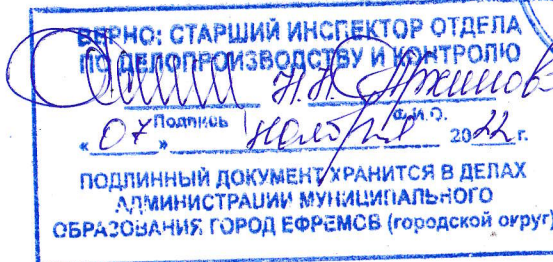 ВЕРНО: СТАРШИЙ ИНСПЕКТОР ОТДЕЛА
ПО ДЕЛОПРОИЗВОДСТВУ И КОНТРОЛЮ
Н.Н.
Подпись Ф.И.О.
« 07 » ноября 2022 г.
ПОДЛИННЫЙ ДОКУМЕНТ ХРАНИТСЯ В ДЕЛАХ
АДМИНИСТРАЦИИ МУНИЦИПАЛЬНОГО
ОБРАЗОВАНИЯ ГОРОД ЕФРЕМОВ (городской округ)